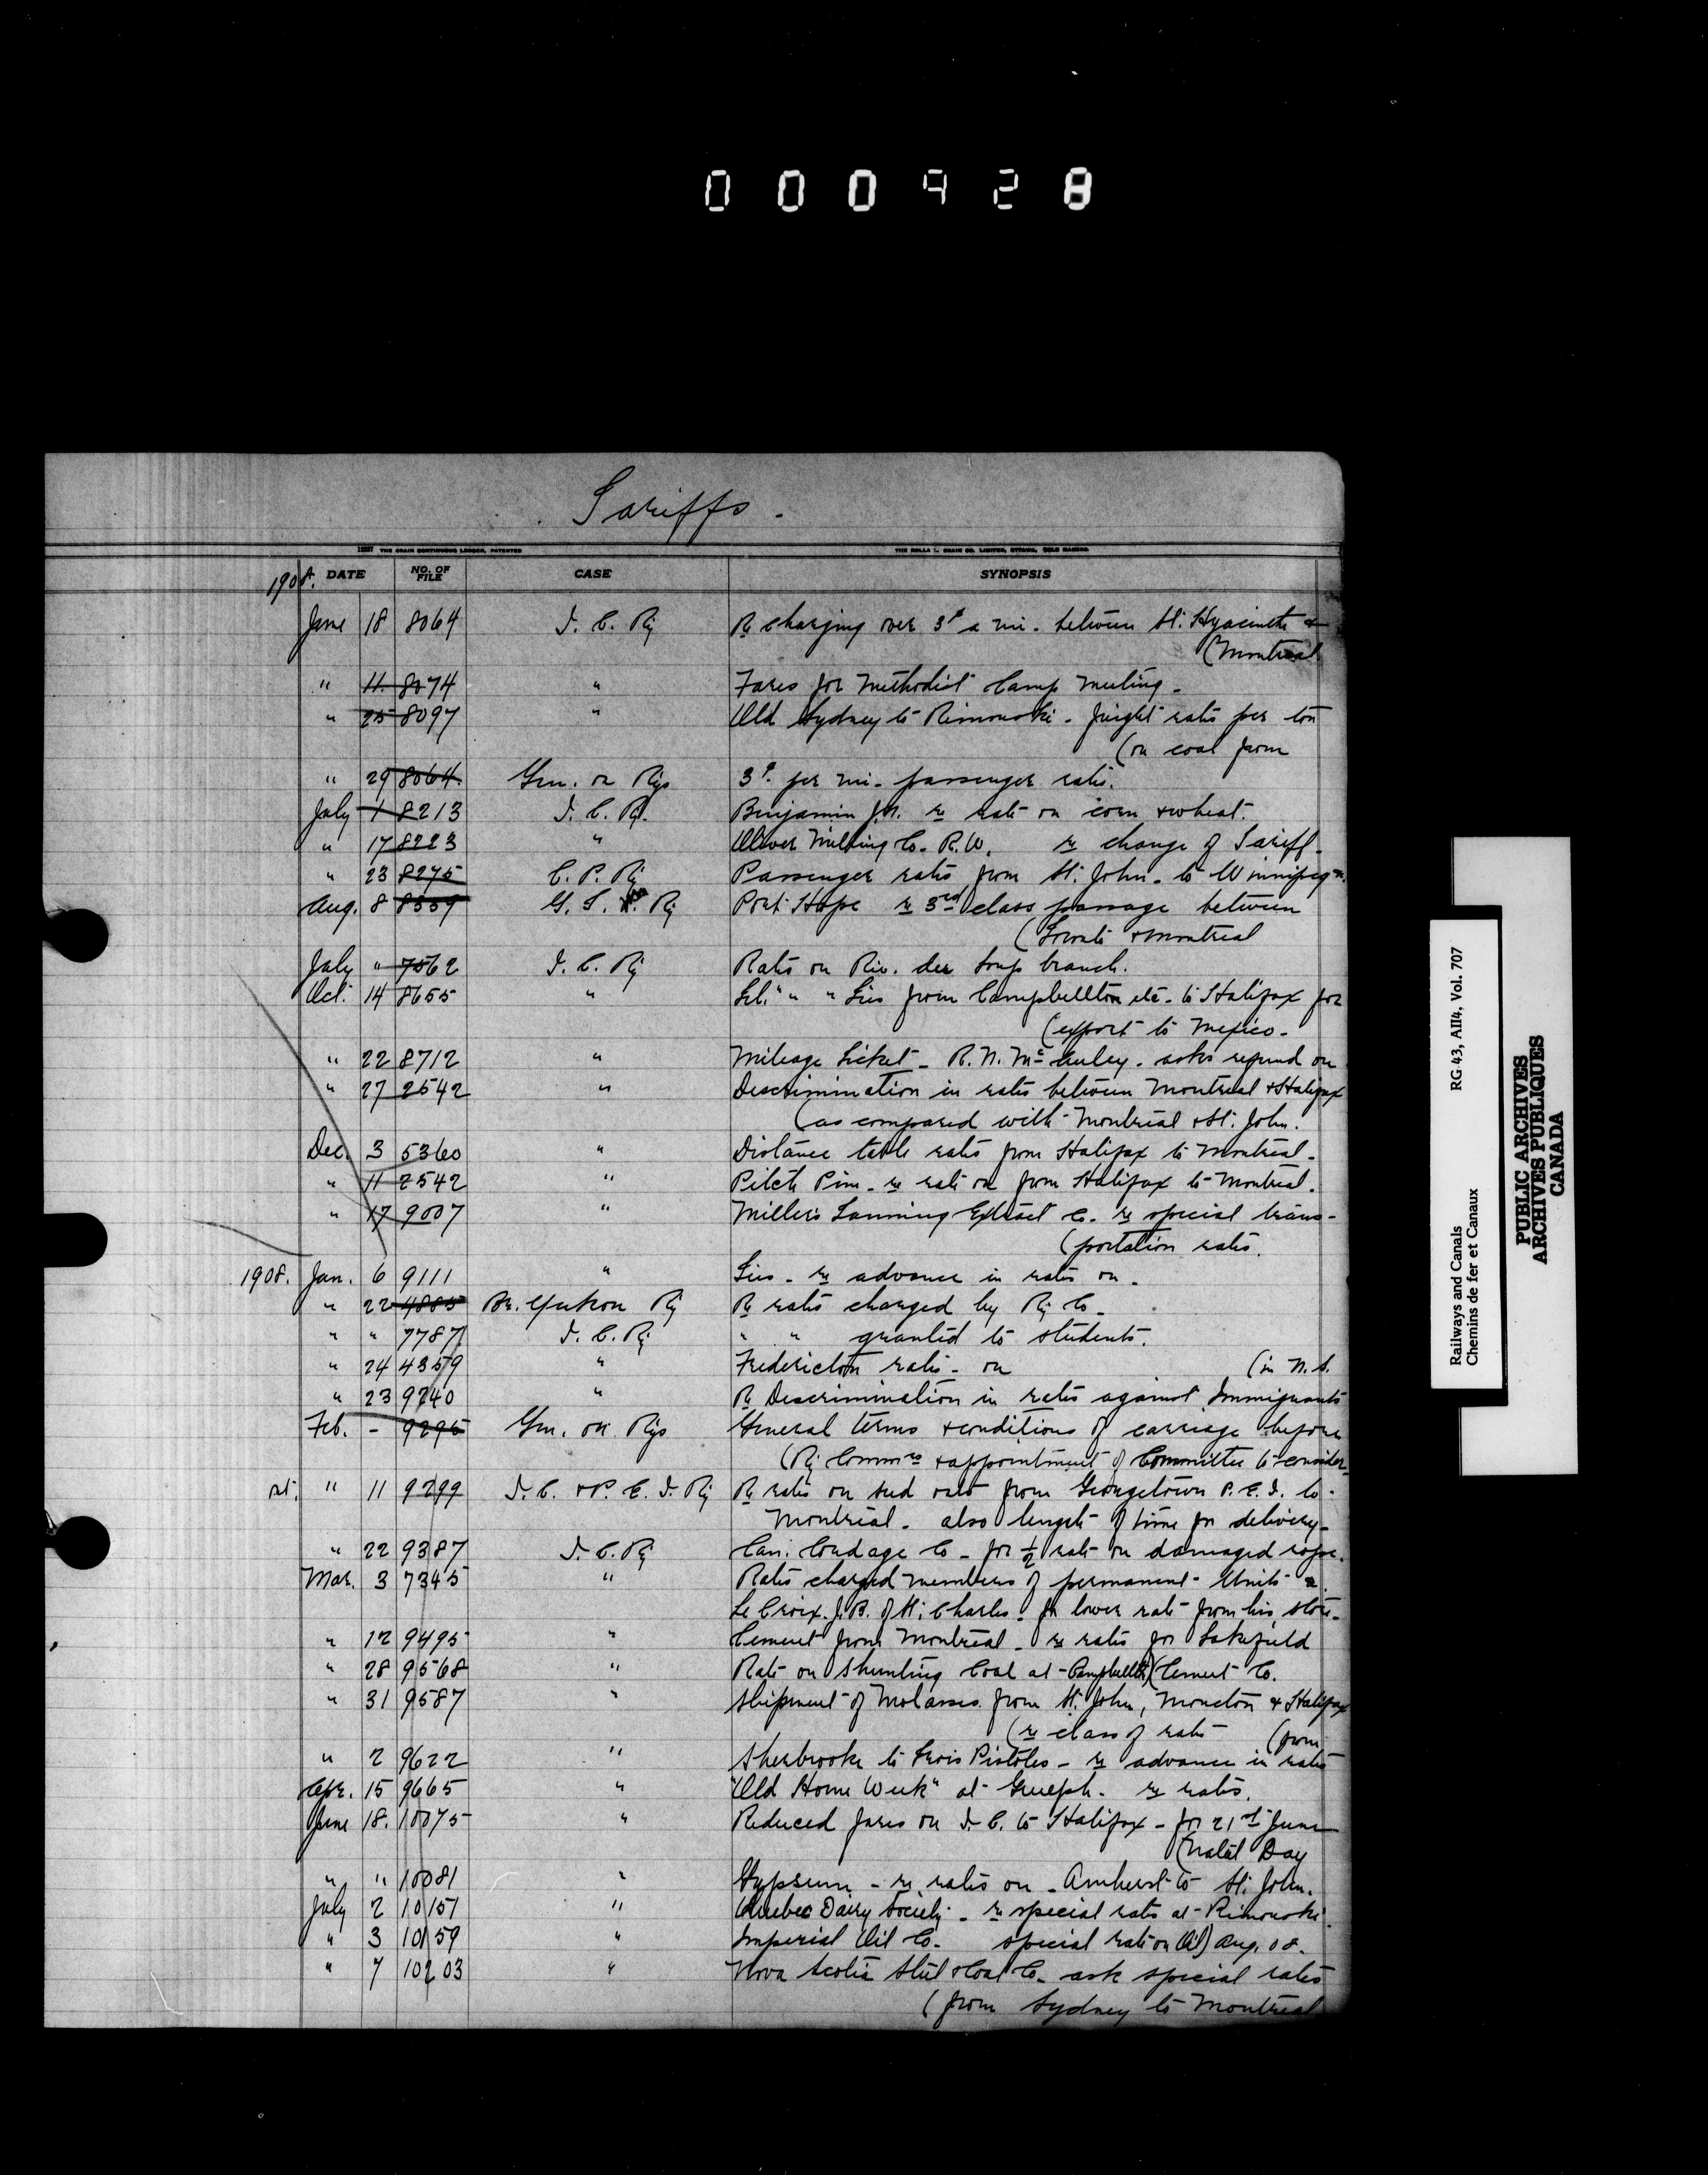 000928
Tariffs.
12257 THE CRAIN CONTINUOUS LEDGER, PATENTED THE ROLLA L. CRAIN CO. LIMITED, OTTAWA, SOLE MAKERS.
DATE NO. OF FILE CASE SYNOPSIS
June 18 8064 I. C. Ry Re charging over 3¢ a mi. between St. Hyacinthe &
(Montreal
" 11 8074 " Fares for Methodist Camp Meeting.
" 25 8097 " Old Sydney to Rimouski - freight rates per ton
(on coal from
" 29 8064 Gen. on Rys 3¢ per mi. passenger rates.
July 1 8213 I. C. Ry. Benjamin J.A. re rate on corn & wheat.
" 17 8223 " Oliver Milling Co. R.W. re change of Tariff.
" 23 8275 C. P. Ry Passenger rates from St. John - to Winnipeg
Aug. 8 8339 G. T. Ry Port Hope re 3rd class passage between
(Toronto & Montreal
July " 7562 I. C. Ry Rates on Riv. du Loup branch.
Oct. 14 8655 " " " Ties from Campbellton etc. to Halifax for
(export to Mexico.
" 22 8712 " Mileage Ticket - R. N. McAuley. asks refund on
" 27 2542 " Descrimination in rates between Montreal & Halifax
(as compared with Montreal & St. John.
Dec. 3 5360 " Distance table rates from Halifax to Montreal.
" 11 2542 " Pitch Pine - re rate on from Halifax to Montreal.
" 17 9007 " Millers Tanning Extract Co. re special trans-
(portation rates.
1908. Jan. 6 9111 " Ties - re advance in rates on.
" 22 4885 Br. Yukon Ry Re rates charged by Ry Co.
" " 7787 I. C. Ry " " granted to students.
" 24 4359 " Fredericton rates - on (in N.S.
" 23 9240 " Re Descrimination in rates against Immigrants
Feb. - 9295 Gen. on Rys General terms & conditions of carriage before
(Ry Commrs & appointment of Committee to consider
" 11 9299 I. C. & P. E. I. Ry Re rates on seed oats from Georgetown P. E. I. to
Montreal - also length of time for delivery.
" 22 9387 I. C. Ry Can. Cordage Co - for 1/2 rate on damaged rope.
Mar. 3 7345 " Rates charged members of permanent Units
Le Croix. J. B. of St. Charles - for lower rate from his store.
" 12 9495 " Cement from Montreal - re rates for Lakefield
" 28 9568 " Rate on Shunting Coal at Campbellton (Cement Co.
" 31 9587 " Shipment of Molasses from St. John, Moncton & Halifax
(re class of rate (from
" 2 9622 " Sherbrooke to Trois Pistoles - re advance in rates
Apr. 15 9665 " "Old Home Week" at Guelph. re rates.
June 18. 10075 " Reduced fares on I. C. to Halifax - for 21st June
(Natal Day
" " 10081 " Gypsum - re rates on - Amherst to St. John.
July 2 10151 " Quebec Dairy Society - re special rates at Rimouski.
" 3 10159 " Imperial Oil Co. special rate on Oil) Aug. 08.
" 7 10203 " Nova Scotia Steel & Coal Co. ask special rates
(from Sydney to Montreal
Railways and Canals RG 43, AII4, Vol. 707
Chemins de fer et Canaux
PUBLIC ARCHIVES
ARCHIVES PUBLIQUES
CANADA